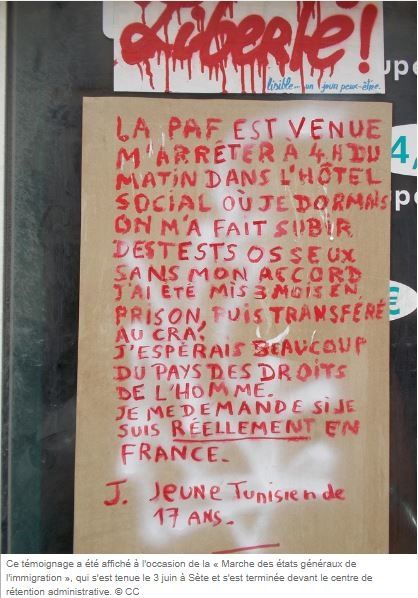 Liberté !
lisible... un jour peut-être.
LA PAF EST VENUE
M'ARRÊTER À 4H DU
MATIN DANS L'HÔTEL
SOCIAL OÙ JE DORMAIS
ON M'A FAIT SUBIR
DES TESTS OSSEUX
SANS MON ACCORD
J'AI ÉTÉ MIS 3 MOIS EN
PRISON, PUIS TRANSFÉRÉ
AU CRA.
J'ESPÉRAIS BEAUCOUP
DU PAYS DES DROITS
DE L'HOMME.
JE ME DEMANDE SI JE
SUIS RÉELLEMENT EN
FRANCE.
J. JEUNE TUNISIEN de
17 ANS.
Ce témoignage a été affiché à l'occasion de la « Marche des états généraux de
l'immigration », qui s'est tenue le 3 juin à Sète et s'est terminée devant le centre de
rétention administrative. © CC